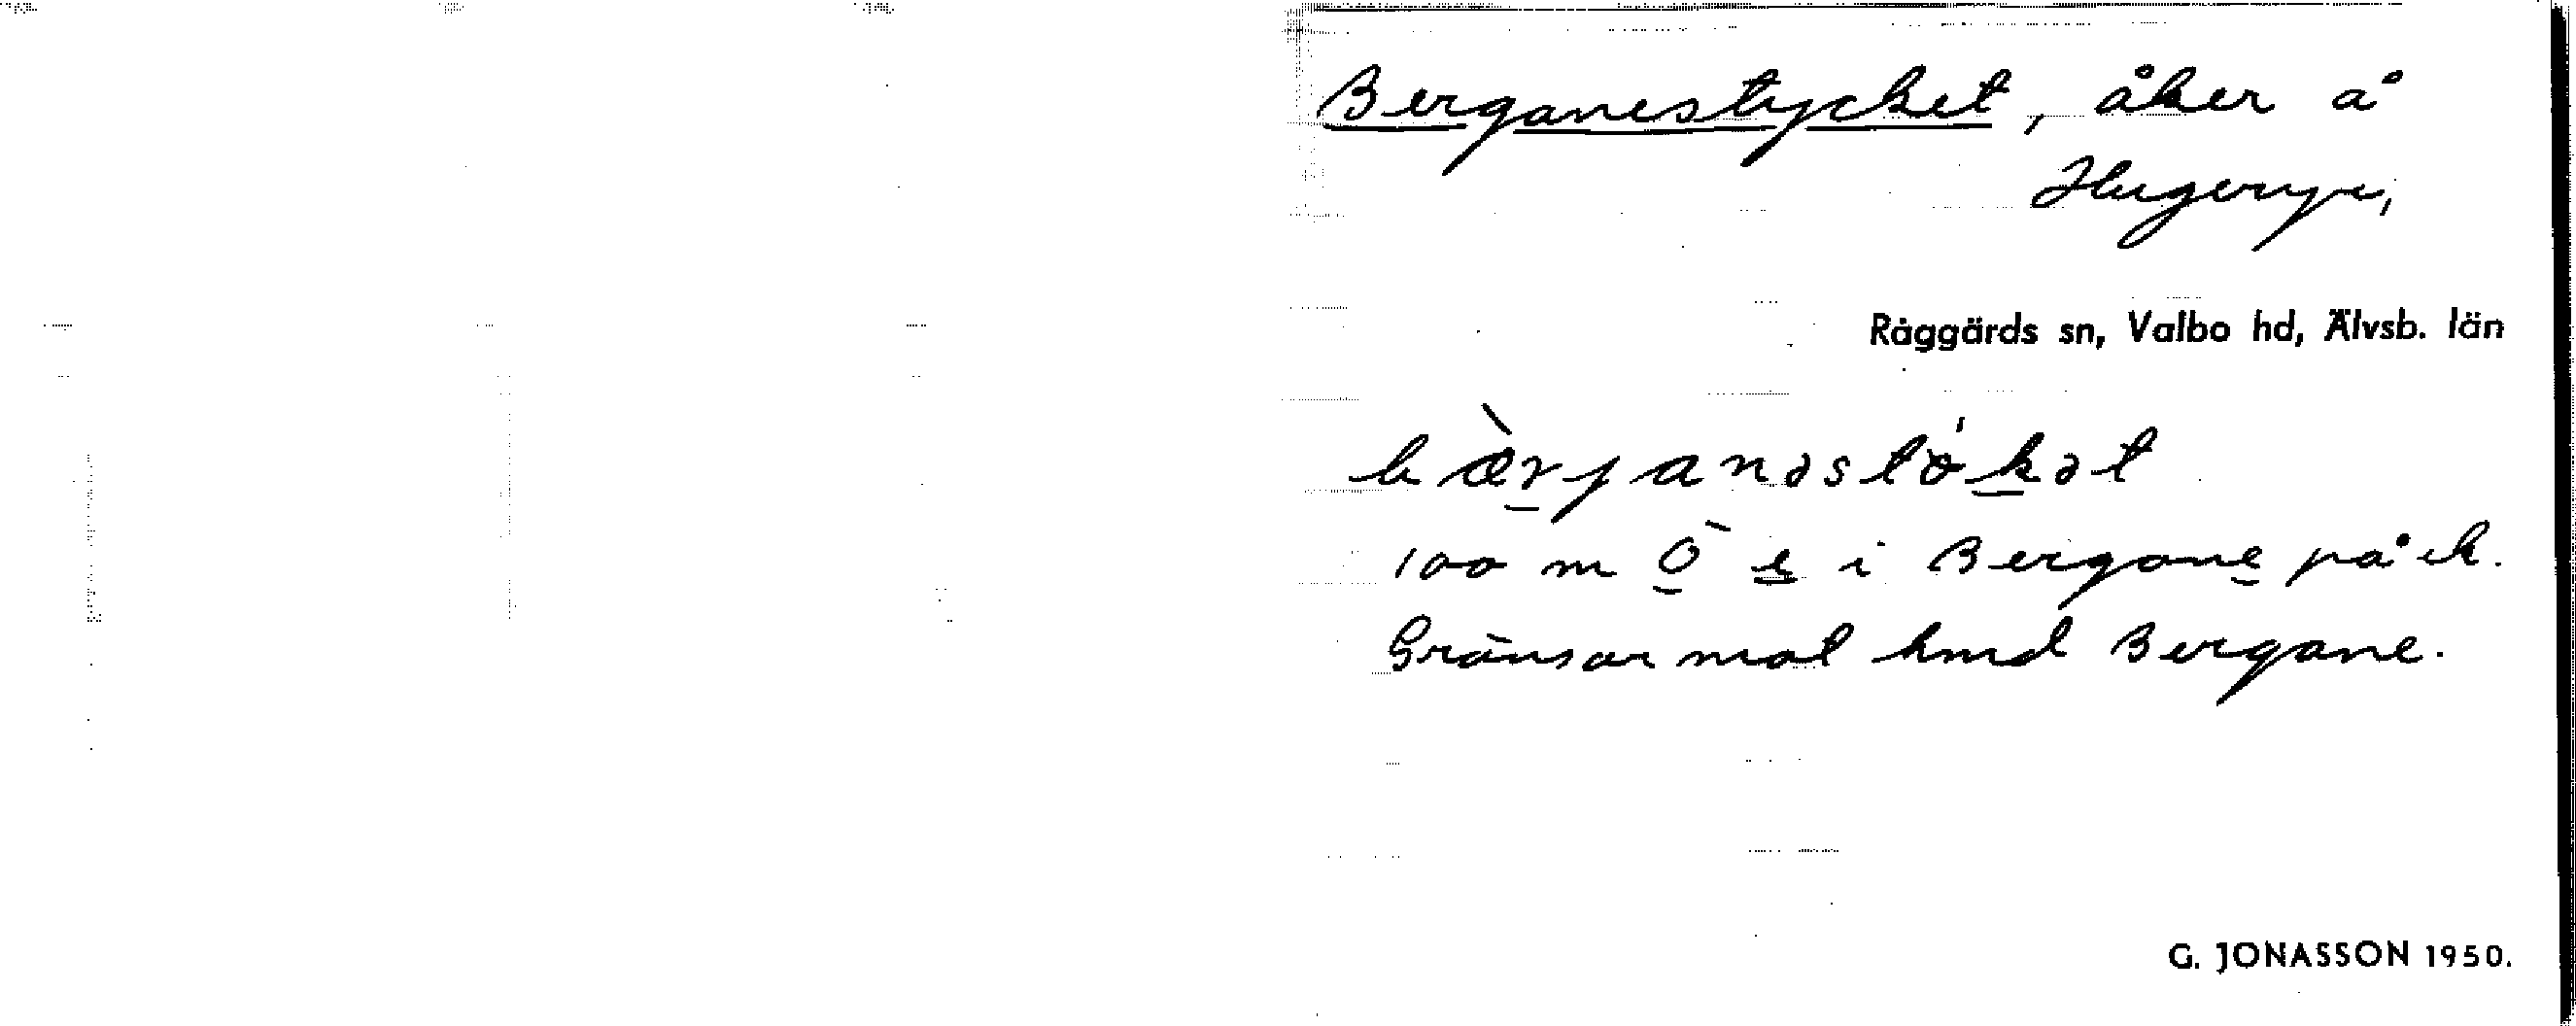 Berganestycket, åker å
Hugeryr,
Råggärds sn, Valbo hd, Älvsb. län
bæ̀rjanəstö́kət
100 m Ö e i Bergane på ek.
Gränsar mot hmd Bergane.
G. JONASSON 1950.